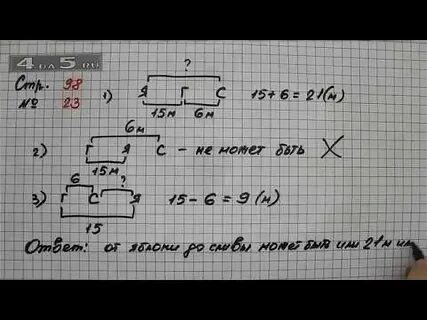 4 на 5.RU
Стр. 98
№ 23
?
1) Я Г С 15+6=21(м)
15м 6м
6м
2) Г Я С - не может быть X
15м
6 ?
3) Г С Я 15-6=9(м)
15
Ответ: от яблони до сливы может быть или 21м или